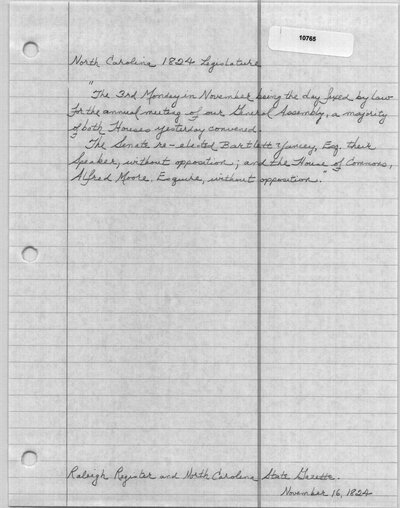 10765
North Carolina 1824 Legislature
"The 3rd Monday in November being the day fixed by law
for the annual meeting of our General Assembly, a majority
of both Houses yesterday convened.
"The Senate re-elected Bartlett Yancey, Esq. their
Speaker, without opposition; and the House of Commons,
Alfred Moore, Esquire, without opposition."
Raleigh Register and North Carolina State Gazette.
November 16, 1824